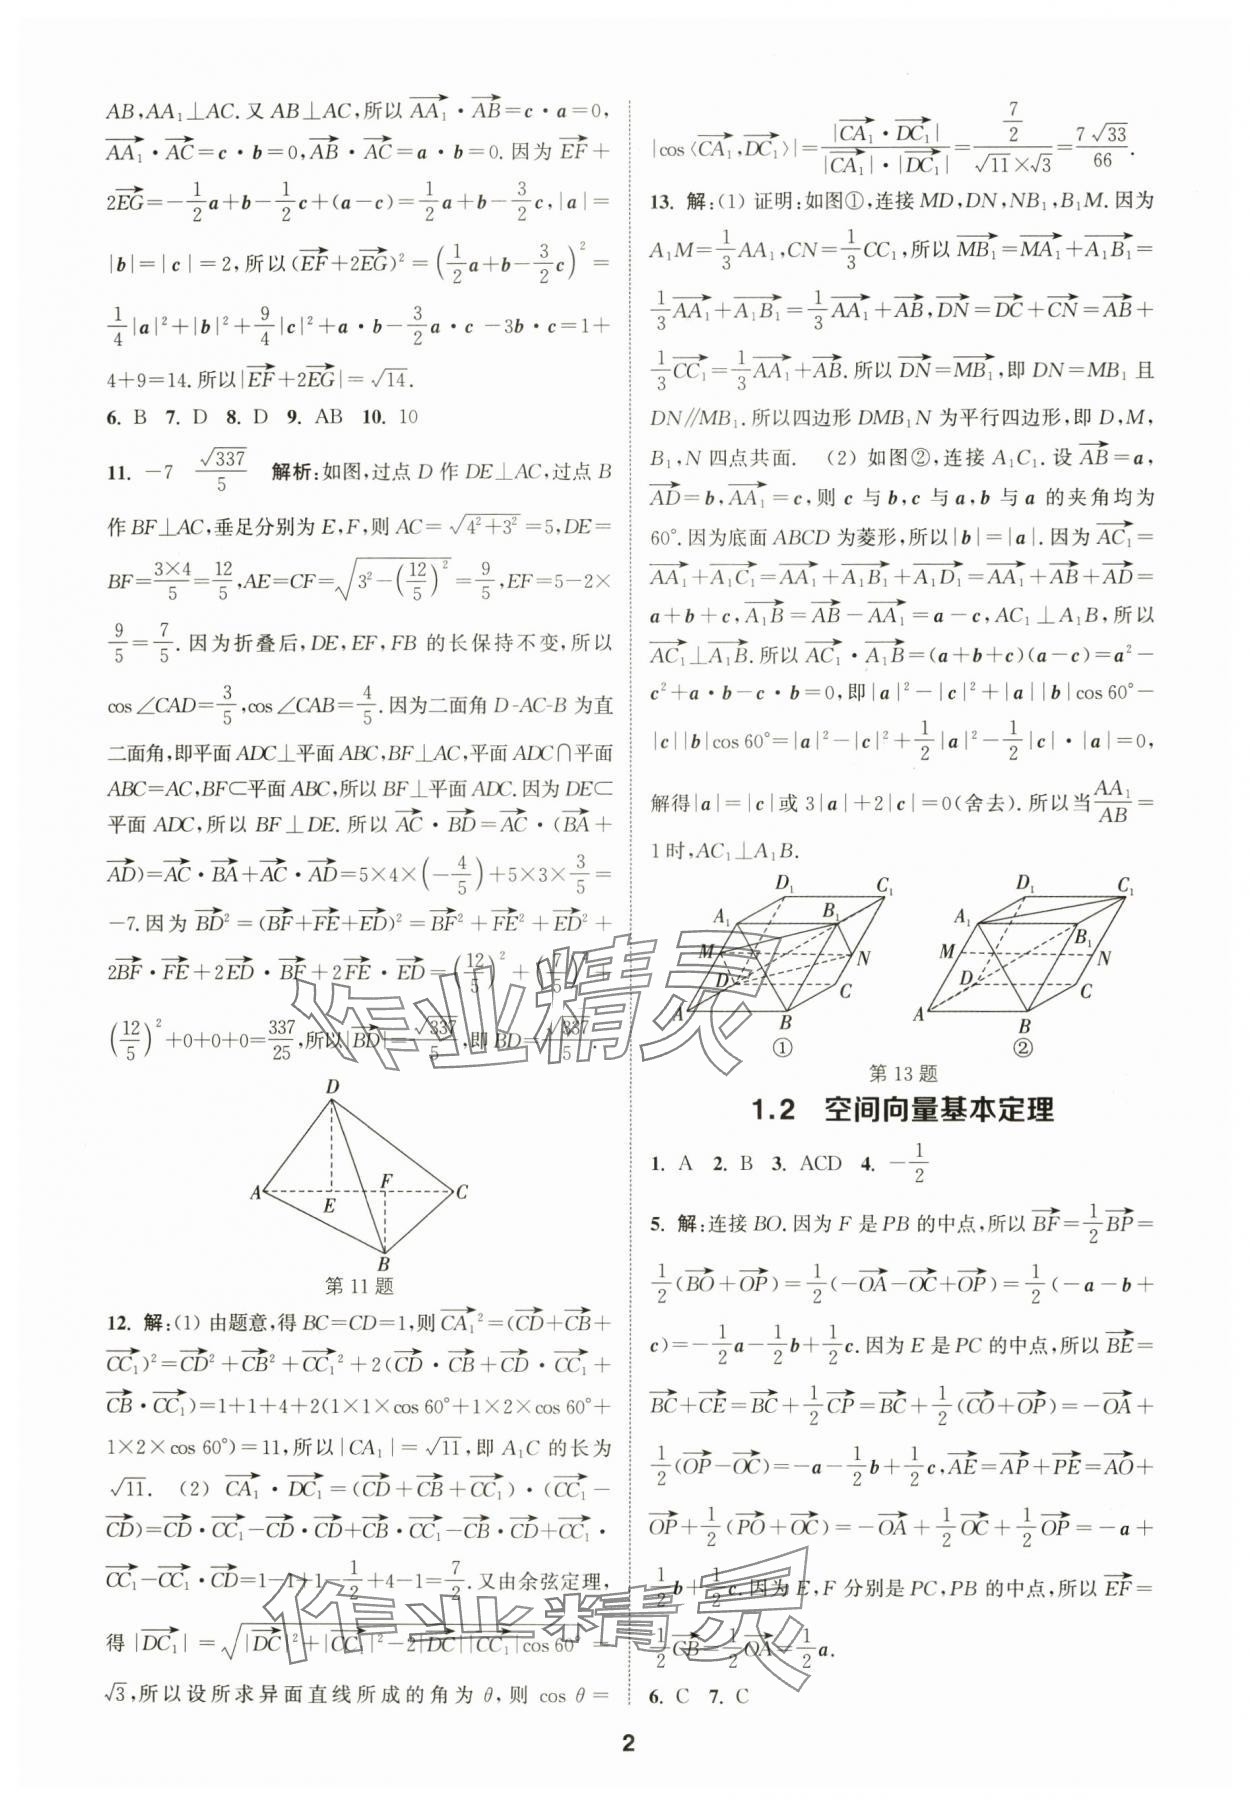 AB,AA₁⊥AC.又AB⊥AC,所以$\overrightarrow{AA_1}$·$\overrightarrow{AB}$=c·a=0,
$\overrightarrow{AA_1}$·$\overrightarrow{AC}$=c·b=0,$\overrightarrow{AB}$·$\overrightarrow{AC}$=a·b=0.因为$\overrightarrow{EF}$+
2$\overrightarrow{EG}$=−$\frac{1}{2}$a+b−$\frac{1}{2}$c+(a−c)=$\frac{1}{2}$a+b−$\frac{3}{2}$c,|a|=
|b|=|c|=2,所以($\overrightarrow{EF}$+2$\overrightarrow{EG}$)²=($\frac{1}{2}$a+b−$\frac{3}{2}$c)²=
$\frac{1}{4}$|a|²+|b|²+$\frac{9}{4}$|c|²+a·b−$\frac{3}{2}$a·c−3b·c=1+
4+9=14.所以|$\overrightarrow{EF}$+2$\overrightarrow{EG}$|=$\sqrt{14}$.
6. B 7. D 8. D 9. AB 10. 10
11. −7 $\frac{\sqrt{337}}{5}$ 解析:如图,过点D作DE⊥AC,过点B
作BF⊥AC,垂足分别为E,F,则AC=$\sqrt{4^2+3^2}$=5,DE=
BF=$\frac{3×4}{5}$=$\frac{12}{5}$,AE=CF=$\sqrt{3^2-(\frac{12}{5})^2}$=$\frac{9}{5}$,EF=5−2×
$\frac{9}{5}$=$\frac{7}{5}$.因为折叠后,DE,EF,FB的长保持不变,所以
cos∠CAD=$\frac{3}{5}$,cos∠CAB=$\frac{4}{5}$.因为二面角D-AC-B为直
二面角,即平面ADC⊥平面ABC,BF⊥AC,平面ADC∩平面
ABC=AC,BF⊂平面ABC,所以BF⊥平面ADC.因为DE⊂
平面ADC,所以BF⊥DE.所以$\overrightarrow{AC}$·$\overrightarrow{BD}$=$\overrightarrow{AC}$·($\overrightarrow{BA}$+
$\overrightarrow{AD}$)=$\overrightarrow{AC}$·$\overrightarrow{BA}$+$\overrightarrow{AC}$·$\overrightarrow{AD}$=5×4×(−$\frac{4}{5}$)+5×3×$\frac{3}{5}$=
−7.因为$\overrightarrow{BD}$²=($\overrightarrow{BF}$+$\overrightarrow{FE}$+$\overrightarrow{ED}$)²=$\overrightarrow{BF}$²+$\overrightarrow{FE}$²+$\overrightarrow{ED}$²+
2$\overrightarrow{BF}$·$\overrightarrow{FE}$+2$\overrightarrow{ED}$·$\overrightarrow{BF}$+2$\overrightarrow{FE}$·$\overrightarrow{ED}$=($\frac{12}{5}$)²+($\frac{7}{5}$)²+
($\frac{12}{5}$)²+0+0+0=$\frac{337}{25}$,所以|$\overrightarrow{BD}$|=$\frac{\sqrt{337}}{5}$,即BD=$\frac{\sqrt{337}}{5}$.
D
A E F C
B
第11题
12. 解:(1) 由题意,得BC=CD=1,则$\overrightarrow{CA_1}$²=($\overrightarrow{CD}$+$\overrightarrow{CB}$+
$\overrightarrow{CC_1}$)²=$\overrightarrow{CD}$²+$\overrightarrow{CB}$²+$\overrightarrow{CC_1}$²+2($\overrightarrow{CD}$·$\overrightarrow{CB}$+$\overrightarrow{CD}$·$\overrightarrow{CC_1}$+
$\overrightarrow{CB}$·$\overrightarrow{CC_1}$)=1+1+4+2(1×1×cos 60°+1×2×cos 60°+
1×2×cos 60°)=11,所以|CA₁|=$\sqrt{11}$,即A₁C的长为
$\sqrt{11}$. (2) $\overrightarrow{CA_1}$·$\overrightarrow{DC_1}$=($\overrightarrow{CD}$+$\overrightarrow{CB}$+$\overrightarrow{CC_1}$)·($\overrightarrow{CC_1}$−
$\overrightarrow{CD}$)=$\overrightarrow{CD}$·$\overrightarrow{CC_1}$−$\overrightarrow{CD}$·$\overrightarrow{CD}$+$\overrightarrow{CB}$·$\overrightarrow{CC_1}$−$\overrightarrow{CB}$·$\overrightarrow{CD}$+$\overrightarrow{CC_1}$·
$\overrightarrow{CC_1}$−$\overrightarrow{CC_1}$·$\overrightarrow{CD}$=1−1+1−$\frac{1}{2}$+4−1=$\frac{7}{2}$.又由余弦定理,
得|$\overrightarrow{DC_1}$|=$\sqrt{|\overrightarrow{DC}|^2+|\overrightarrow{CC_1}|^2-2|\overrightarrow{DC}||\overrightarrow{CC_1}|\cos 60°}$=
$\sqrt{3}$,所以设所求异面直线所成的角为θ,则cos θ=
|cos⟨$\overrightarrow{CA_1}$,$\overrightarrow{DC_1}$⟩|=$\frac{|\overrightarrow{CA_1}·\overrightarrow{DC_1}|}{|\overrightarrow{CA_1}|·|\overrightarrow{DC_1}|}$=$\frac{\frac{7}{2}}{\sqrt{11}×\sqrt{3}}$=$\frac{7\sqrt{33}}{66}$.
13. 解:(1) 证明:如图①,连接MD,DN,NB₁,B₁M.因为
A₁M=$\frac{1}{3}$AA₁,CN=$\frac{1}{3}$CC₁,所以$\overrightarrow{MB_1}$=$\overrightarrow{MA_1}$+$\overrightarrow{A_1B_1}$=
$\frac{1}{3}$$\overrightarrow{AA_1}$+$\overrightarrow{A_1B_1}$=$\frac{1}{3}$$\overrightarrow{AA_1}$+$\overrightarrow{AB}$,$\overrightarrow{DN}$=$\overrightarrow{DC}$+$\overrightarrow{CN}$=$\overrightarrow{AB}$+
$\frac{1}{3}$$\overrightarrow{CC_1}$=$\frac{1}{3}$$\overrightarrow{AA_1}$+$\overrightarrow{AB}$.所以$\overrightarrow{DN}$=$\overrightarrow{MB_1}$,即DN=MB₁且
DN∥MB₁.所以四边形DMB₁N为平行四边形,即D,M,
B₁,N四点共面. (2) 如图②,连接A₁C₁.设$\overrightarrow{AB}$=a,
$\overrightarrow{AD}$=b,$\overrightarrow{AA_1}$=c,则c与b,c与a,b与a的夹角均为
60°.因为底面ABCD为菱形,所以|b|=|a|.因为$\overrightarrow{AC_1}$=
$\overrightarrow{AA_1}$+$\overrightarrow{A_1C_1}$=$\overrightarrow{AA_1}$+$\overrightarrow{A_1B_1}$+$\overrightarrow{A_1D_1}$=$\overrightarrow{AA_1}$+$\overrightarrow{AB}$+$\overrightarrow{AD}$=
a+b+c,$\overrightarrow{A_1B}$=$\overrightarrow{AB}$−$\overrightarrow{AA_1}$=a−c,AC₁⊥A₁B,所以
$\overrightarrow{AC_1}$⊥$\overrightarrow{A_1B}$.所以$\overrightarrow{AC_1}$·$\overrightarrow{A_1B}$=(a+b+c)(a−c)=a²−
c²+a·b−c·b=0,即|a|²−|c|²+|a||b|cos 60°−
|c||b|cos 60°=|a|²−|c|²+$\frac{1}{2}$|a|²−$\frac{1}{2}$|c|·|a|=0,
解得|a|=|c|或3|a|+2|c|=0(舍去).所以当$\frac{AA_1}{AB}$=
1时,AC₁⊥A₁B.
D₁ C₁ D₁ C₁
A₁ B₁ A₁ B₁
M N M N
D C D C
A B A B
① ②
第13题
1.2 空间向量基本定理
1. A 2. B 3. ACD 4. −$\frac{1}{2}$
5. 解:连接BO.因为F是PB的中点,所以$\overrightarrow{BF}$=$\frac{1}{2}$$\overrightarrow{BP}$=
$\frac{1}{2}$($\overrightarrow{BO}$+$\overrightarrow{OP}$)=$\frac{1}{2}$(−$\overrightarrow{OA}$−$\overrightarrow{OC}$+$\overrightarrow{OP}$)=$\frac{1}{2}$(−a−b+
c)=−$\frac{1}{2}$a−$\frac{1}{2}$b+$\frac{1}{2}$c.因为E是PC的中点,所以$\overrightarrow{BE}$=
$\overrightarrow{BC}$+$\overrightarrow{CE}$=$\overrightarrow{BC}$+$\frac{1}{2}$$\overrightarrow{CP}$=$\overrightarrow{BC}$+$\frac{1}{2}$($\overrightarrow{CO}$+$\overrightarrow{OP}$)=−$\overrightarrow{OA}$+
$\frac{1}{2}$($\overrightarrow{OP}$−$\overrightarrow{OC}$)=−a−$\frac{1}{2}$b+$\frac{1}{2}$c,$\overrightarrow{AE}$=$\overrightarrow{AP}$+$\overrightarrow{PE}$=$\overrightarrow{AO}$+
$\overrightarrow{OP}$+$\frac{1}{2}$($\overrightarrow{PO}$+$\overrightarrow{OC}$)=−$\overrightarrow{OA}$+$\frac{1}{2}$$\overrightarrow{OC}$+$\frac{1}{2}$$\overrightarrow{OP}$=−a+
$\frac{1}{2}$b+$\frac{1}{2}$c.因为E,F分别是PC,PB的中点,所以$\overrightarrow{EF}$=
$\frac{1}{2}$$\overrightarrow{CB}$=$\frac{1}{2}$$\overrightarrow{OA}$=$\frac{1}{2}$a.
6. C 7. C
2
作业精灵
作业精灵